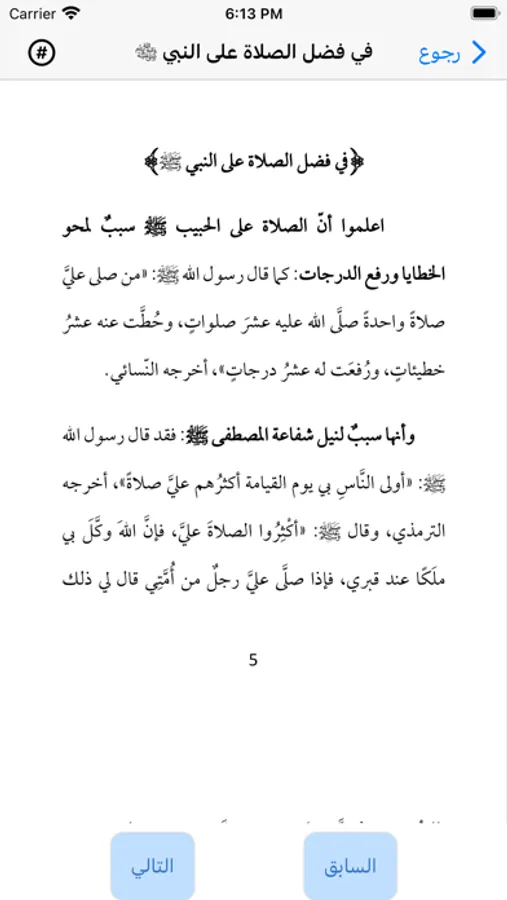 Carrier 6:13 PM
رجوع في فضل الصلاة على النبي ﷺ #
﴿في فضل الصلاة على النبي ﷺ﴾
اعلموا أنّ الصلاة على الحبيب ﷺ سببٌ لمحو
الخطايا ورفع الدرجات: كما قال رسول الله ﷺ: «من صلى عليَّ
صلاةً واحدةً صلَّى الله عليه عشرَ صلواتٍ، وحُطَّت عنه عشرُ
خطيئاتٍ، ورُفعَت له عشرُ درجاتٍ»، أخرجه النّسائي.
وأنها سببٌ لنيل شفاعة المصطفى ﷺ: فقد قال رسول الله
ﷺ: «أولى النَّاسِ بي يوم القيامة أكثرُهم عليَّ صلاةً»، أخرجه
الترمذي، وقال ﷺ: «أكْثِرُوا الصلاةَ عليَّ، فإنَّ اللهَ وكَّلَ بي
ملَكًا عند قبري، فإذا صلَّى عليَّ رجلٌ من أُمَّتِي قال لي ذلك
5
السابق التالي